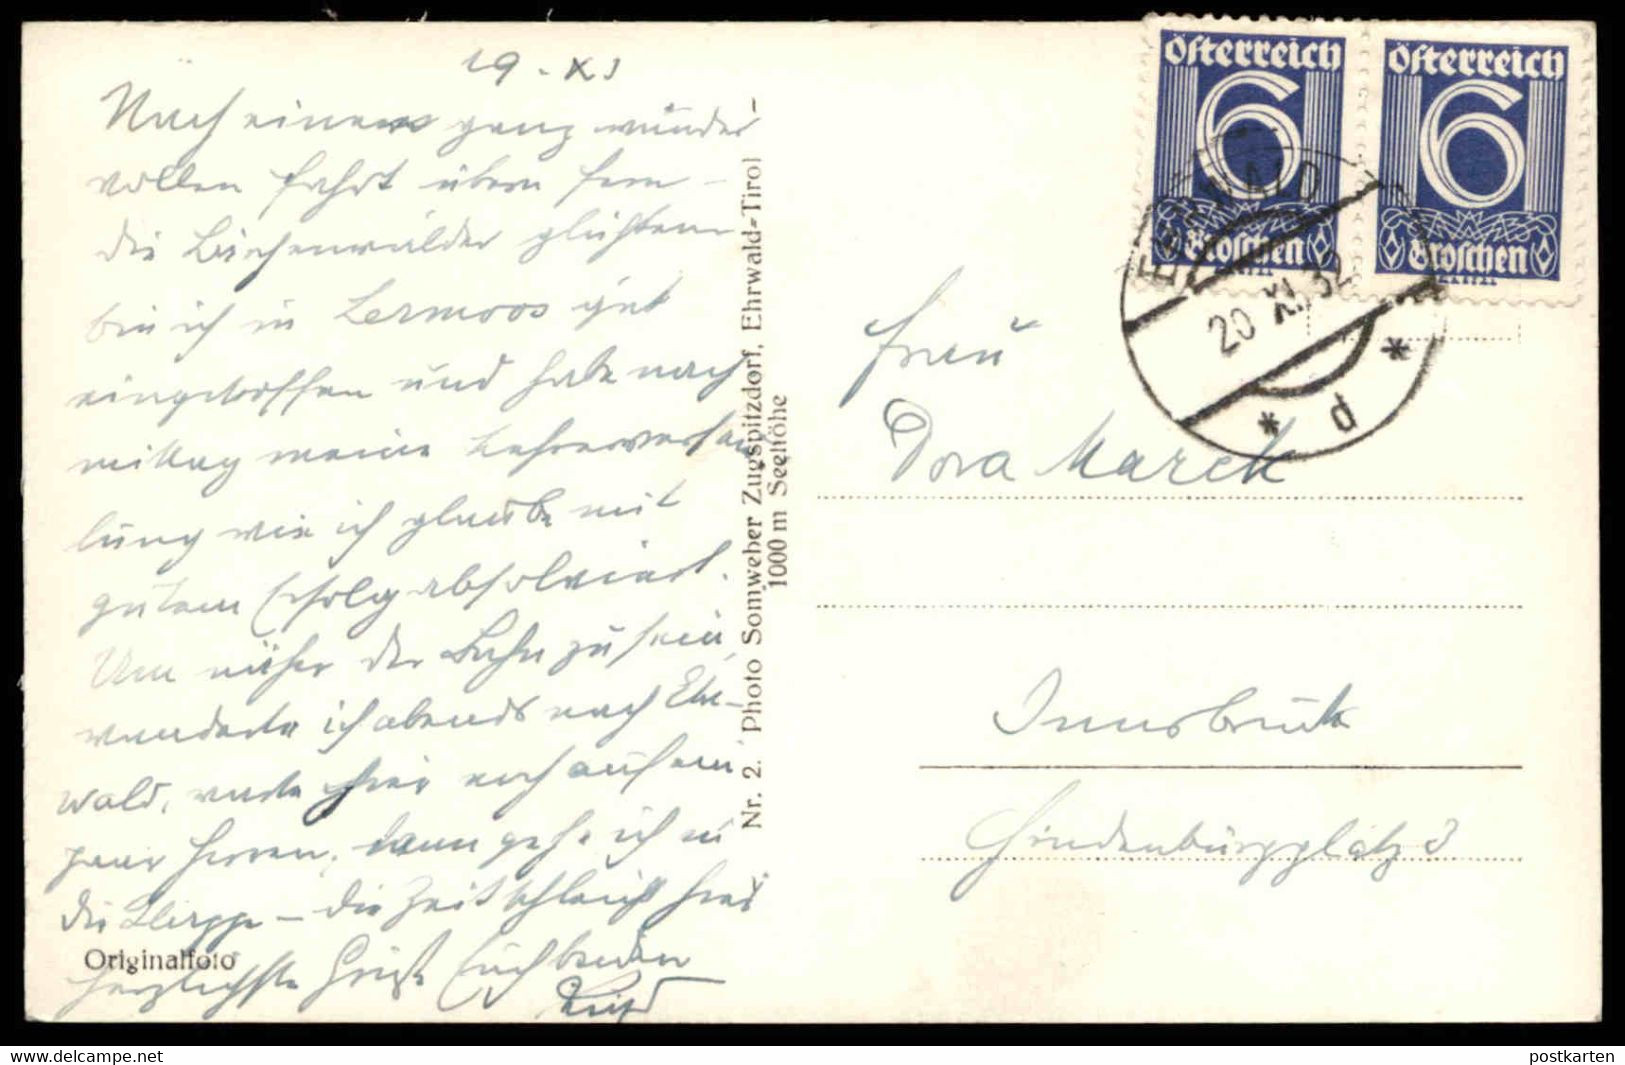 19. XI
Nach einer ganz wunder
vollen Fahrt übern Fern –
die Lärchenwälder glühten
bin ich in Lermoos gut
eingetroffen und habe nach
mittag meine Lehrerversam
lung wie ich glaube mit
gutem Erfolg absolviert.
Um näher der Bahn zu sein,
wanderte ich abends nach Ehr-
wald, warte hier noch auf ein
paar Herren, dann gehe ich in
die Klappe – die Zeit schleicht hier
herzlichste Grüße Euch beiden
Originalfoto
Nr. 2. Photo Somweber Zugspitzdorf, Ehrwald-Tirol –
1000 m Seehöhe
Österreich
6
Groschen
Österreich
6
Groschen
EHRWALD
20 XI 32
* d *
Frau
Dora Marek
Innsbruck
Hindenburgplatz 3
www.delcampe.net
postkarten